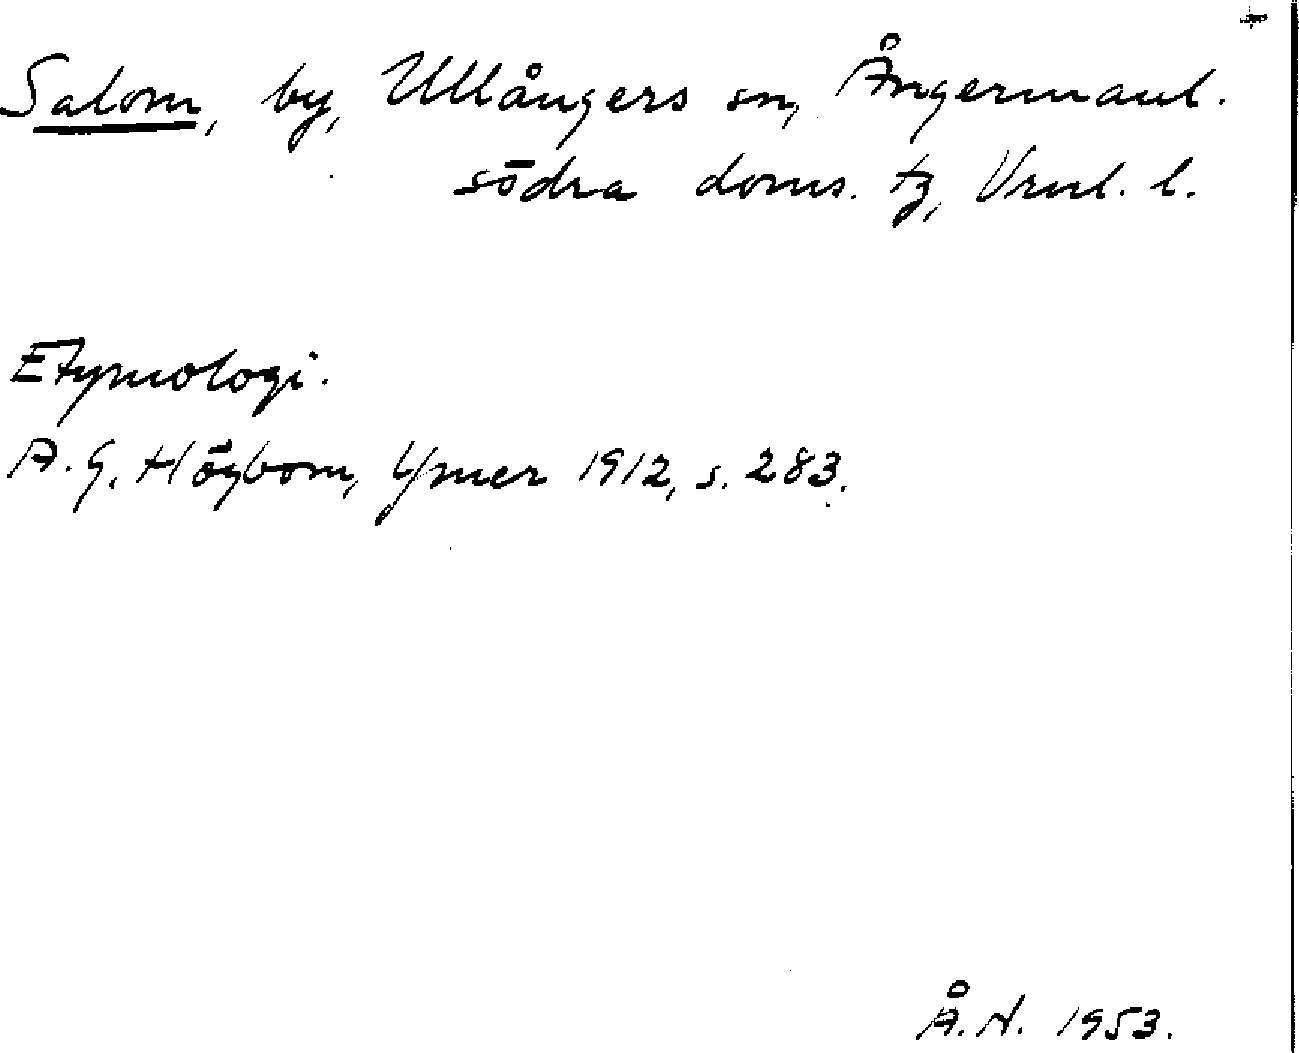 Salom, by, Ullångers sn, Ångermanl.
södra doms. tg, Vrnl. l.
Etymologi.
A. G. Högbom, Ymer 1912, s. 283.
Å. N. 1953.